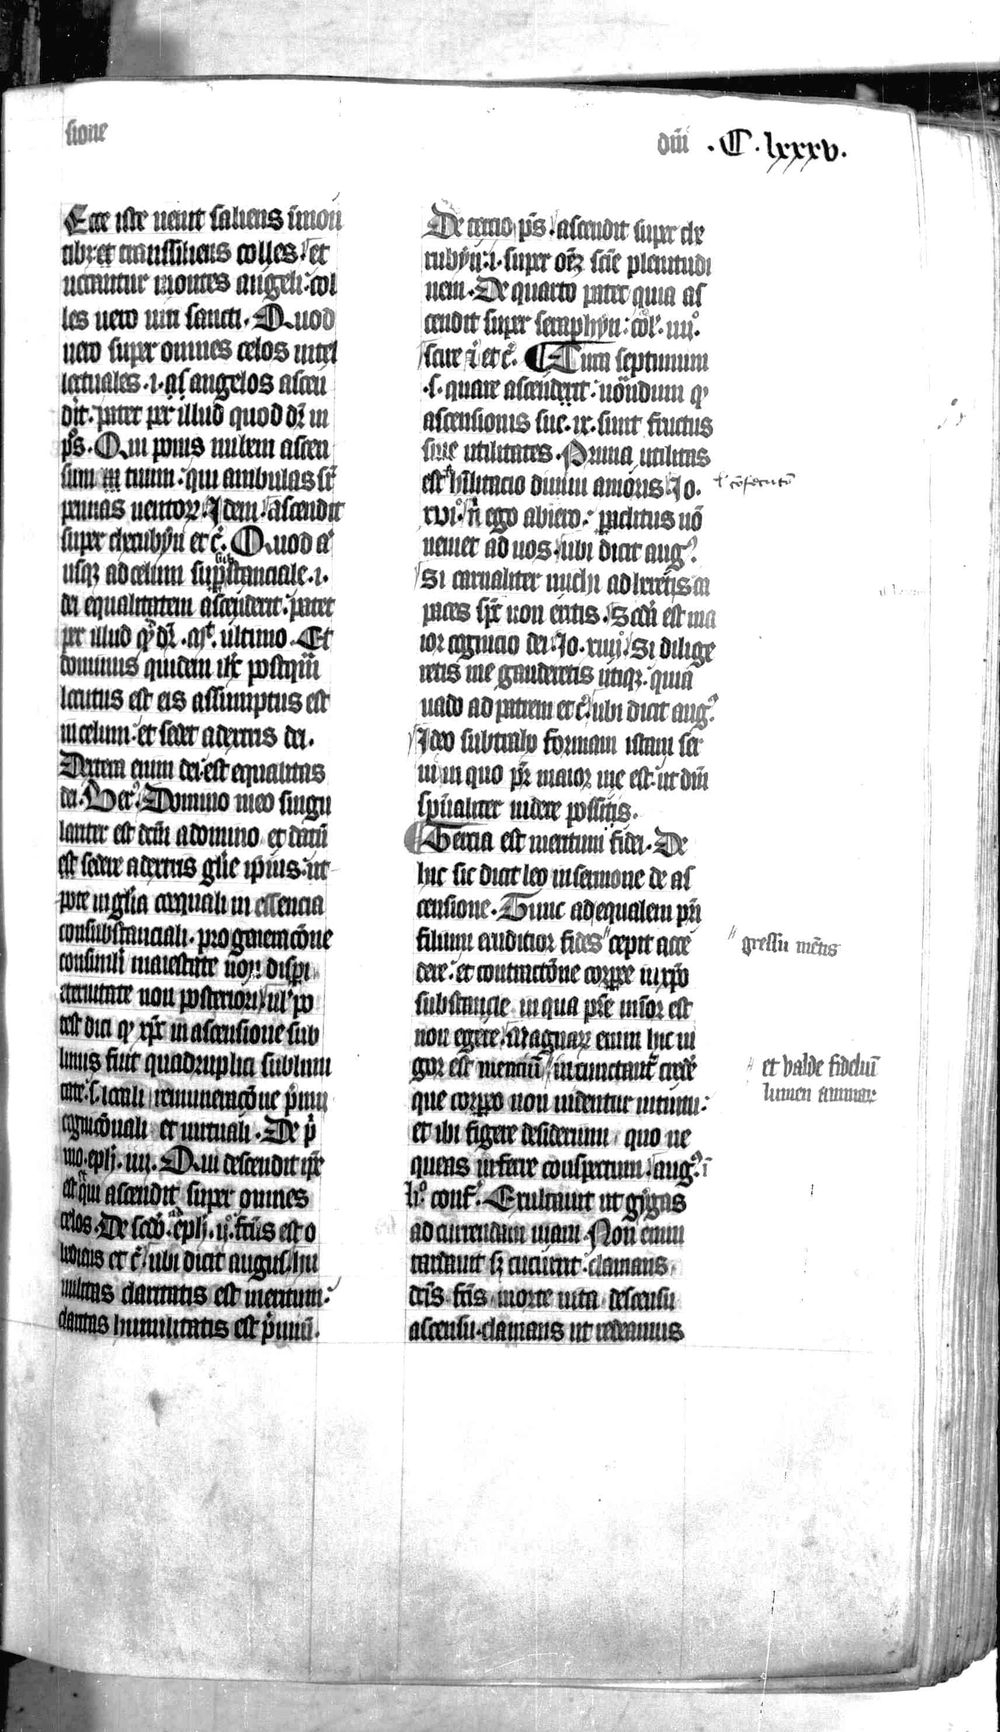 sione
dñi .C.lxxxv.
Ecce iste uenit saliens ĩ mon
tibus et transsiliens colles. et
uocantur montes angeli. col
les uero uiri sancti. Quod
uero super omnes celos intel
lectuales .i. angelos ascen
dit. patet per illud quod dr̃ in
pˢ. Qui ponis nubem ascen
sum tuum. qui ambulas sr̃
pennas uentoꝝ. Idem ascendit
super cherubyn et c̃. Quod aͭ
usqꝫ ad celum suꝑsubstanciale .i.
dei equalitatem ascenderit. patet
per illud qd̾ dr̃ . mͬ. ultimo. Et
dominus quidem ihc̃ postqm̃
locutus est eis assumptus est
in celum. et sedet a dextris dei.
Dextera enim dei est equalitas
dei. Ber̾. Domino meo singu
lariter est dictũ a domino et datũ
est sedere a dextris glĩe ipsius. ut
pote in glĩa coequali in essencia
consubstanciali. pro
consimili maiestate non dispi
eternitate non posteriori. uel po
test dici qͥ xp̃c in ascensione sub
limis fuit quadruplici sublimi
tate. s. locali remuneracõe p̃mii
cognicõnali et uirtuali. De pͥ
mo. eph̾. iiij. Qui descendit ip̃e
est qui ascendit super omnes
celos. De scd̾o. eph̾. ij̊. fc̃us est o
bediens et c̃. ubi dicit augus. hu
militas claritatis est meritum.
claritas humilitatis est p̃miũ.
De tercio pˢ. ascendit super che
rubyn .i. super om̃ẽ sciẽ plenitudi
nem. De quarto patet quia as
cendit super seraphyn. col̾. iij̊.
scire ĩ et c̃. Cum septimum
.s. quare ascenderit. nõndum qͥ
ascensionis sue .ix. sunt fructus
siue utilitates. Prima utilitas
est hĩlitacio diuini amoris. Jo.
xvi̊. ñ ego abiero. paclitus nõ
ueniet ad uos. ubi dicit aug̾.
Si carnaliter michi adheretis ca
paces sp̃c non eritis. Scd̾a est ma
ior cognicio dei. Jo. xiiij̊. Si dilige
retis me gauderetis utiqꝫ. quia
uado ad patrem et c̃. ubi dicit aug̾.
Ideo subtraho formam istam ser
ui in quo pr̃ maior me est. ut dñi
sp̃ualiter uidere possitis.
Tercia est meritum fidei. De
hac sic dicit leo in sermone de as
censione. Tunc ad equalem pr̃i
filium eruditior fides cepit acce
dere. et contractõne corpee in xp̃o
substancie in qua pr̃e mĩor est
non egere. Magnaꝝ enim hic ui
gor est menciũ incunctant̃ cred̾e
que corpeo non uidentur intuitu.
et ibi figere desiderium quo ne
queas inferre conspectum. aug̾. ĩ
li̊. conf̾. Exultauit ut gygas
ad currendam uiam. Non enim
tardauit sꝫ cucurrit. clamans
dcĩs fc̃is morte uita descensu
ascensu. clamans ut redeamus
gressũ mẽtis
et valde fideliũ
lumen animaꝝ